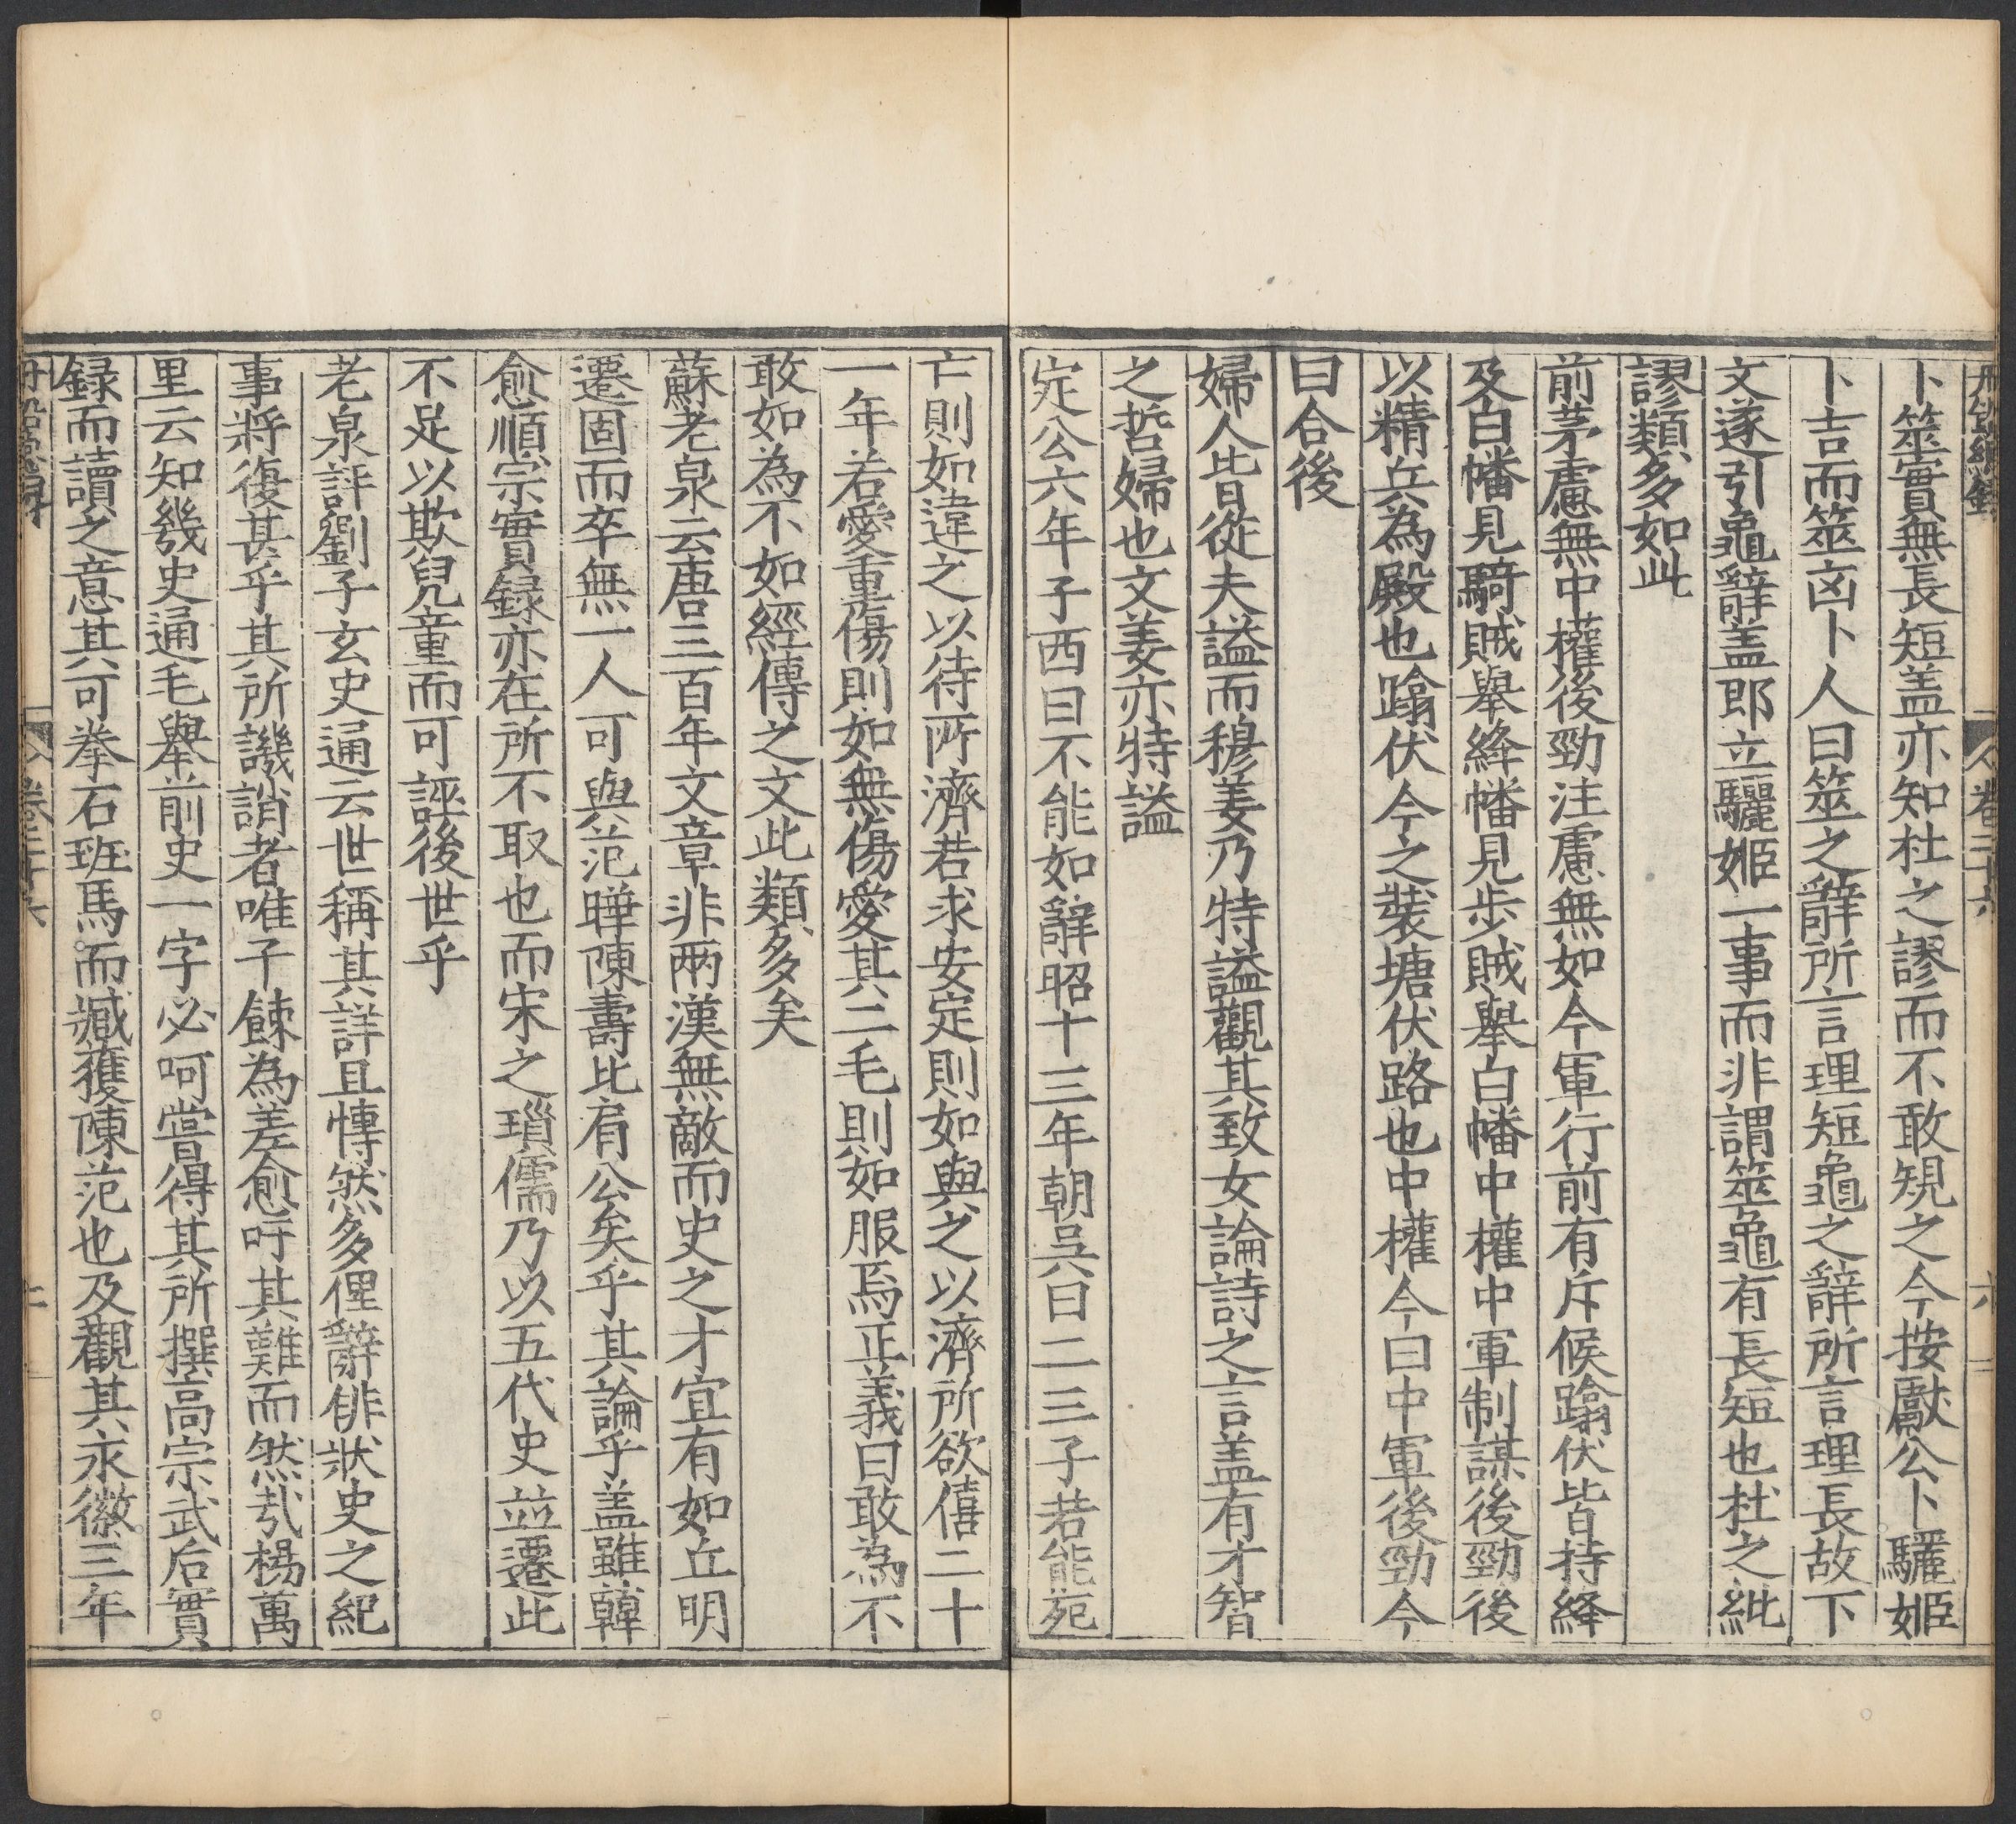 丹鉛總錄 卷二十六 六
卜筮實無長短盖亦知杜之謬而不敢䂓之今按獻公卜驪姬
卜吉而筮凶卜人曰筮之辭所言理短龜之辭所言理長故下
文遂引龜辭盖郎立驪姬一事而非謂筮龜有長短也杜之紕
謬類多如此
前茅慮無中權後勁注慮無如今軍行前有斥候蹹伏皆持絳
及白幡見騎賊舉絳幡見步賊舉白幡中權中軍制謀後勁後
以精兵為殿也蹹伏今之裝塘伏路也中權今曰中軍後勁今
曰合後
婦人皆從夫謚而穆姜乃特謚觀其致女論詩之言盖有才智
之哲婦也文姜亦特謚
定公六年子西曰不能如辭昭十三年朝吳曰二三子若能死
亡則如違之以待所濟若求安定則如與之以濟所欲僖二十
一年若愛重傷則如無傷愛其二毛則如服焉正義曰敢為不
敢如為不如經傳之文此類多矣
蘇老泉云唐三百年文章非兩漢無敵而史之才宜有如丘明
遷固而卒無一人可與范曄陳壽比肩公矣乎其論乎盖雖韓
愈順宗實録亦在所不取也而宋之瑣儒乃以五代史並遷此
不足以欺兒童而可誣後世乎
老泉評劉子玄史通云世稱其詳且慱然多俚辭俳狀史之紀
事將復甚乎其所譏誚者唯子餗為差愈吁其難而然㢤楊萬
里云知幾史通毛舉前史一字必呵嘗得其所撰高宗武后實
録而讀之意其可拳石班馬而臧獲陳范也及觀其永徽三年
卷二十六